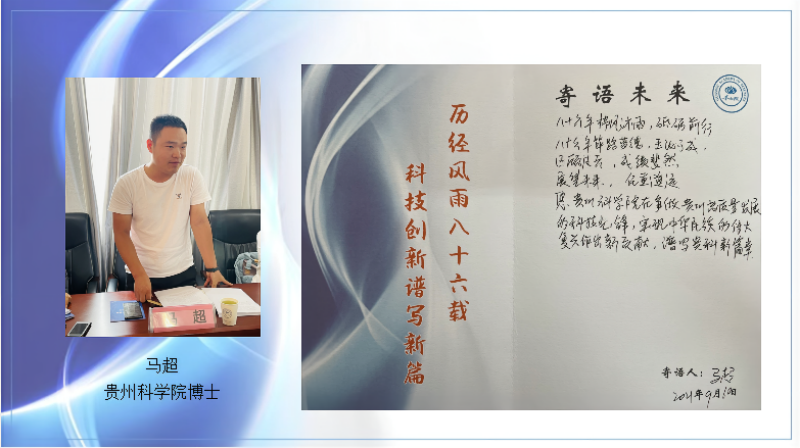 历经风雨八十六载
科技创新谱写新篇
寄语未来
八十六年栉风沐雨，砥砺前行
八十六年筚路蓝缕，玉汝于成
历经风云，成绩斐然
展望未来，任重道远
愿贵州科学院在争做贵州高质量发展
的科技先锋，实现中华民族的伟大
复兴作出新贡献，谱写贵科新篇章
寄语人：马超
2021年9月
马 超
马超
贵州科学院博士